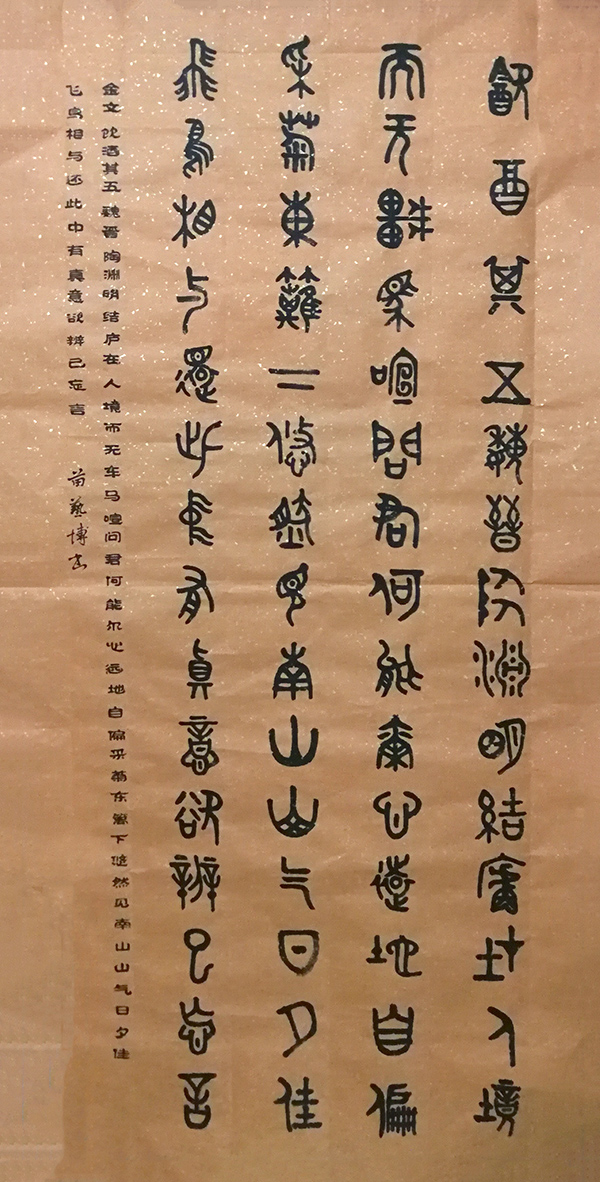 飲酒其五魏晉陶淵明結廬在人境
而无車馬喧問君何能爾心遠地自偏
采菊東籬下悠然見南山山气日夕佳
飛鳥相与還此中有真意欲辨已忘言
金文 饮酒其五 魏晋 陶渊明 结庐在人境而无车马喧问君何能尔心远地自偏采菊东篱下悠然见南山山气日夕佳
飞鸟相与还此中有真意欲辨已忘言 苗藝博书